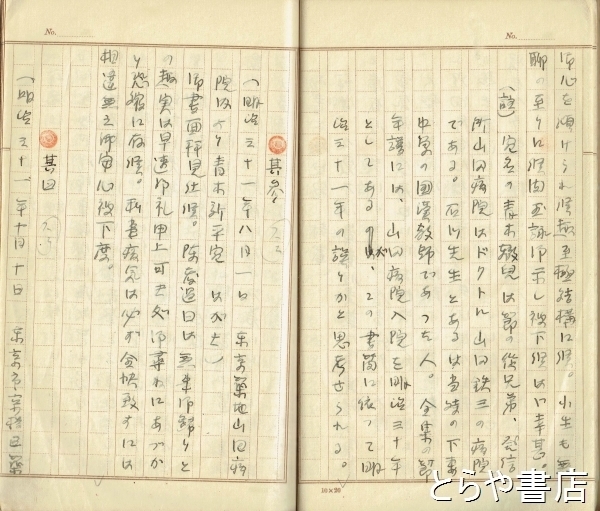 No.
御心を傾けられ候無至極結構に候。小生も無
聊の至りに候間御詠御示し被下候はゞ幸甚。
(註) 宛名の青木敬兒は節の従兄弟、発信
所山田病院はドクトル山田鉄三の病院
である。石川先生とあるは当時の下妻
中学の国漢教師であつた人。全集の節
年譜には、山田病院入院を明治三十年
としてあるが、この書簡に依つて明
治三十一年の誤りかと思考せられる。
10×20
No.
其参
(明治三十一年八月一日 東京築地山田病
院より 青木新平宛 はがき)
御書面拝見仕候。陳者過日は無事御帰りと
の趣実は早速御礼申上可き処御尋ねにあづか
り恐縮に存候。私書病気は必ず全快致すには
相違無之御安心被下度。
其四
(明治三十一年十月十日 東京市京橋区築
とらや書店